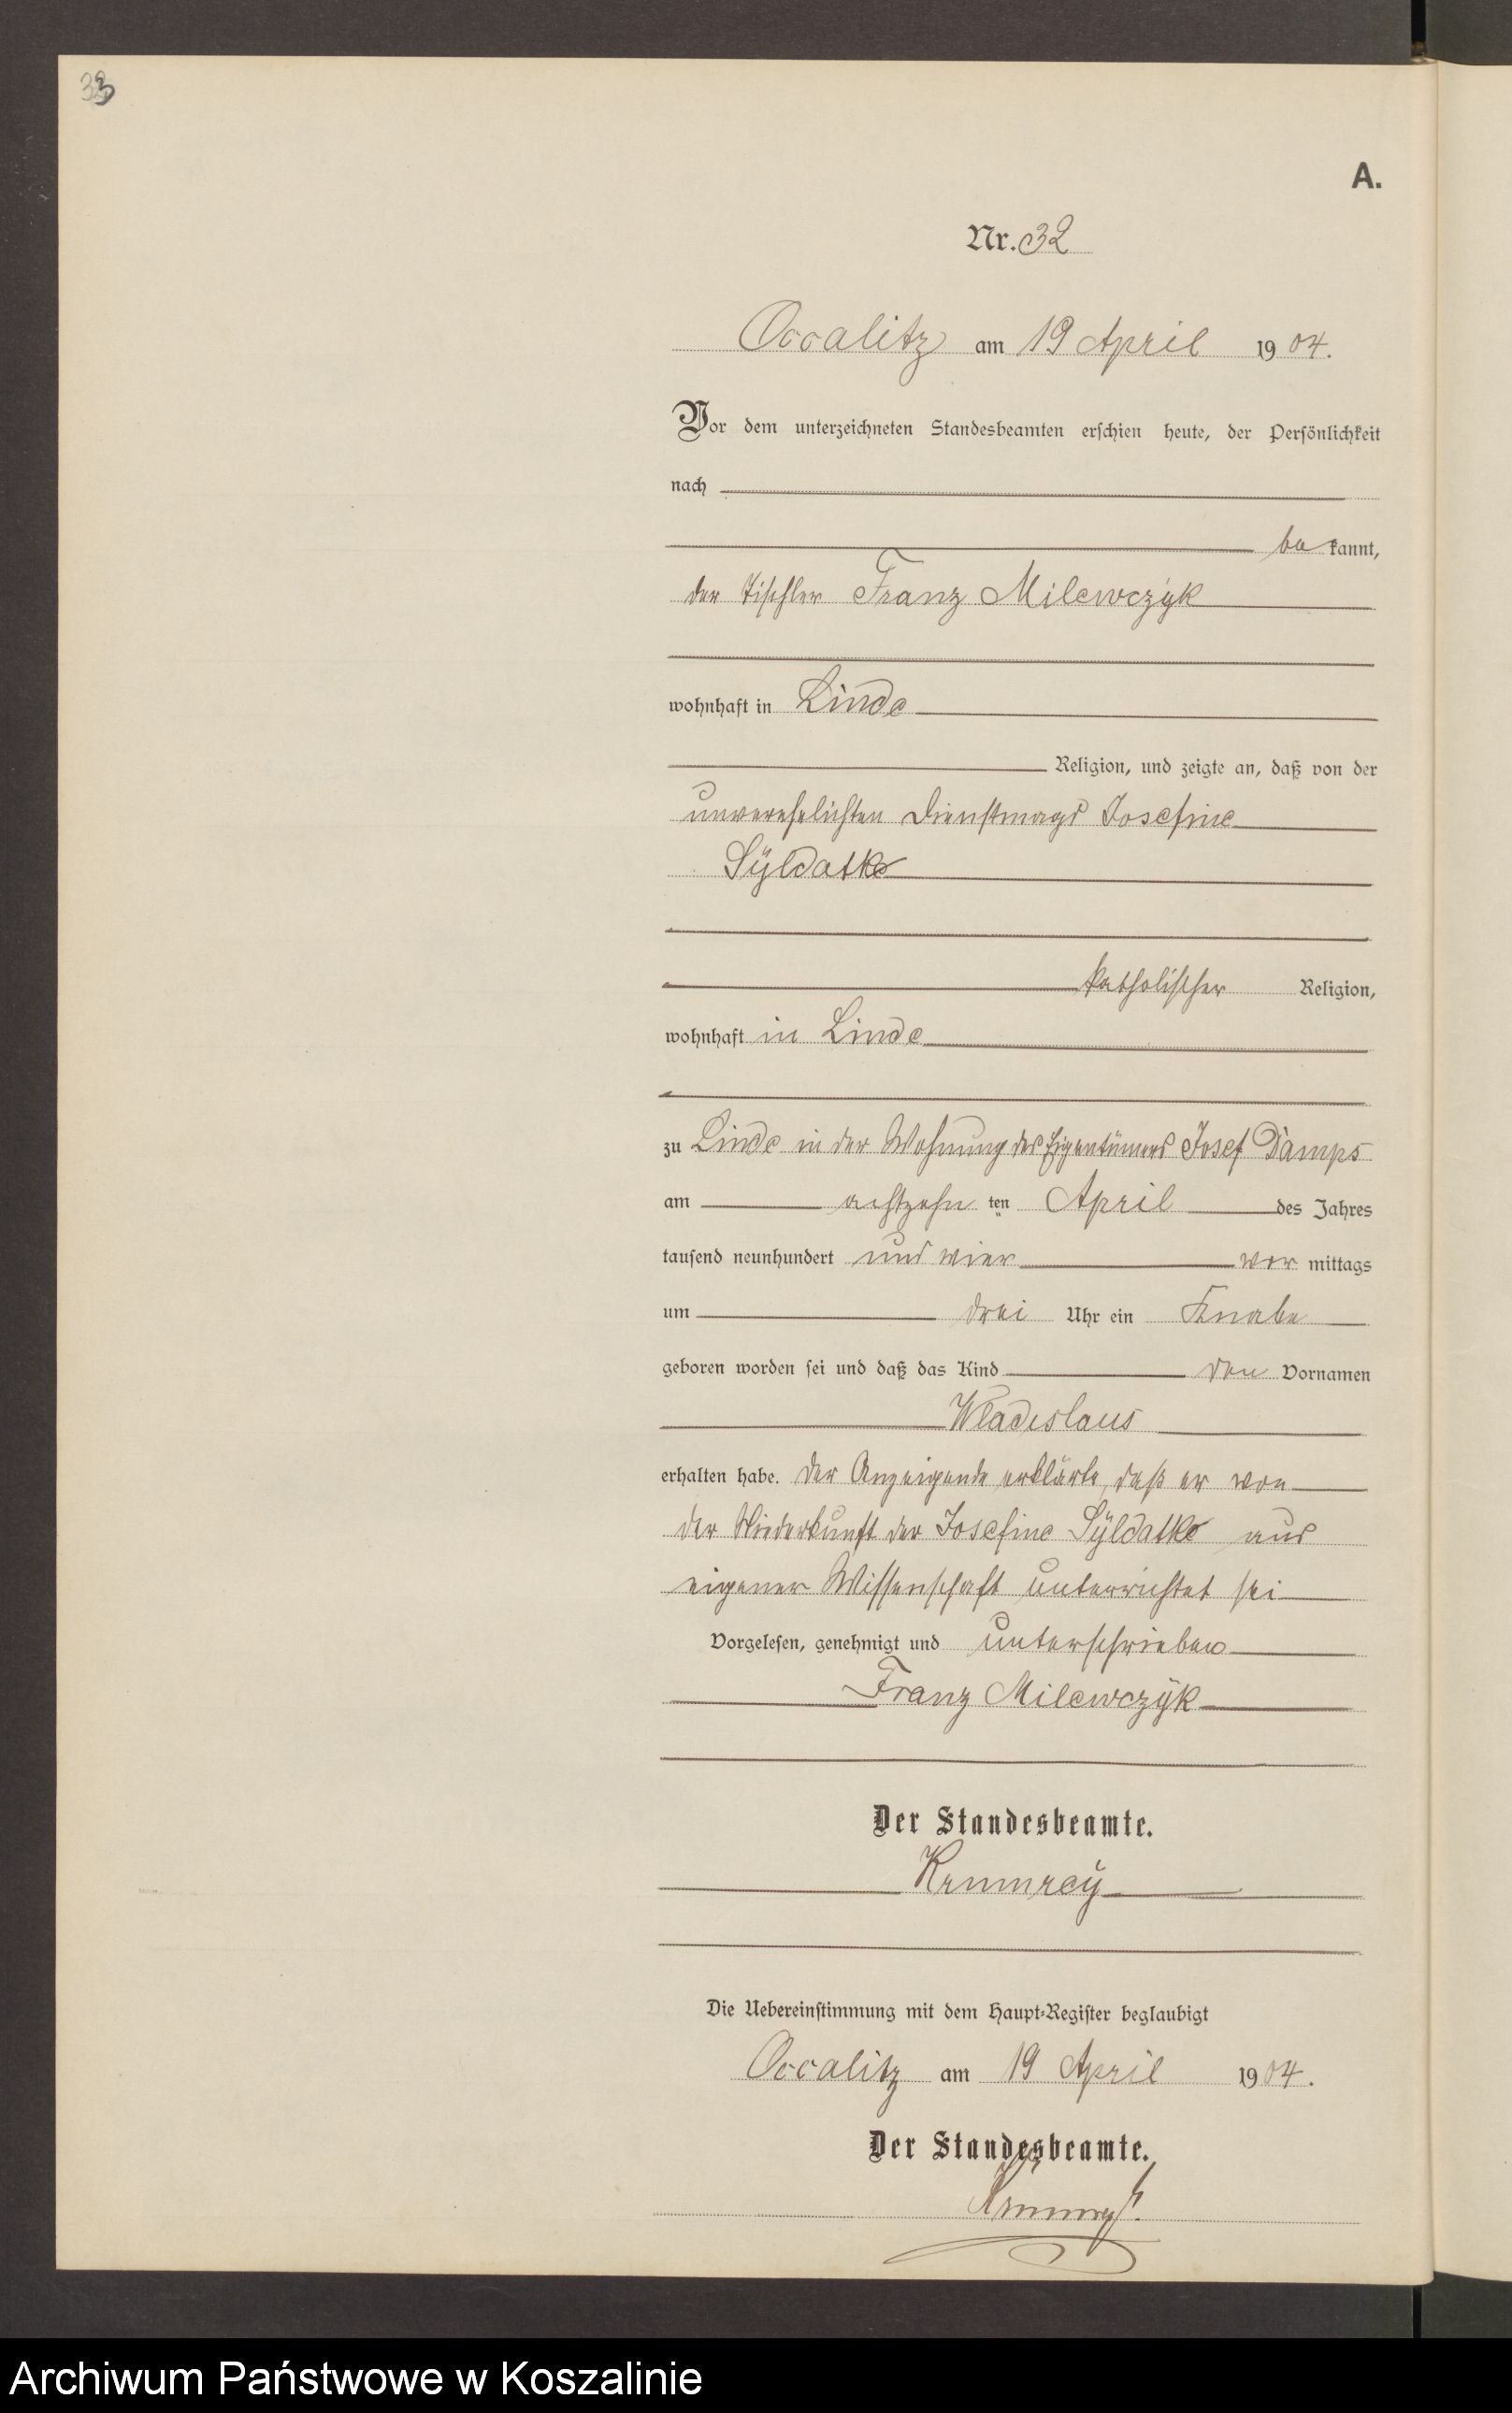 33
A.
Nr. 32
Occalitz am 19 April 1904.
Vor dem unterzeichneten Standesbeamten erschien heute, der Persönlichkeit
nach
be kannt,
der Tischler Franz Milewczÿk
wohnhaft in Linde
Religion, und zeigte an, daß von der
unverehelichten Dienstmagd Josefine
Sÿldatke
katholischer Religion,
wohnhaft in Linde
zu Linde in der Wohnung des Eigentümers Josef Damps
am achtzehn ten April des Jahres
tausend neunhundert und vier vor mittags
um drei Uhr ein Knabe
geboren worden sei und daß das Kind den Vornamen
Wladislaus
erhalten habe. Der Anzeigende erklärte, daß er von
der Niederkunft der Josefine Sÿldatke aus
eigener Wissenschaft unterrichtet sei
Vorgelesen, genehmigt und unterschrieben
Franz Milewczÿk
Der Standesbeamte.
Krumreÿ
Die Uebereinstimmung mit dem Haupt-Register beglaubigt
Occalitz am 19 April 1904.
Der Standesbeamte.
Krumreÿ.
Archiwum Państwowe w Koszalinie